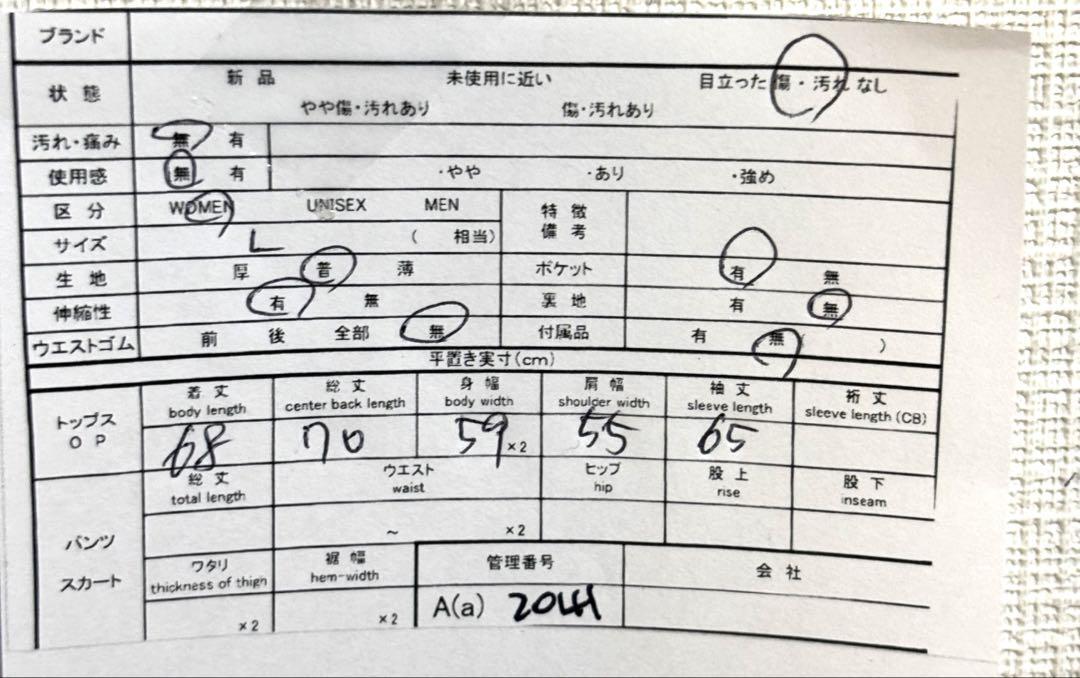 ブランド
状態 新品 未使用に近い 目立った傷・汚れなし
やや傷・汚れあり 傷・汚れあり
汚れ・痛み 無 有
使用感 無 有 ・やや ・あり ・強め
区分 WOMEN UNISEX MEN 特徴備考
サイズ L ( 相当)
生地 厚 普 薄 ポケット 有 無
伸縮性 有 無 裏地 有 無
ウエストゴム 前 後 全部 無 付属品 有 無 )
平置き実寸(cm)
トップス OP
着丈 総丈 身幅 肩幅 袖丈 裄丈
body length center back length body width shoulder width sleeve length sleeve length (CB)
68 70 59×2 55 65
パンツ スカート
総丈 ウエスト ヒップ 股上 股下
total length waist hip rise inseam
~ ×2
ワタリ 裾幅 管理番号 会社
thickness of thigh hem-width
×2 ×2 A(a)